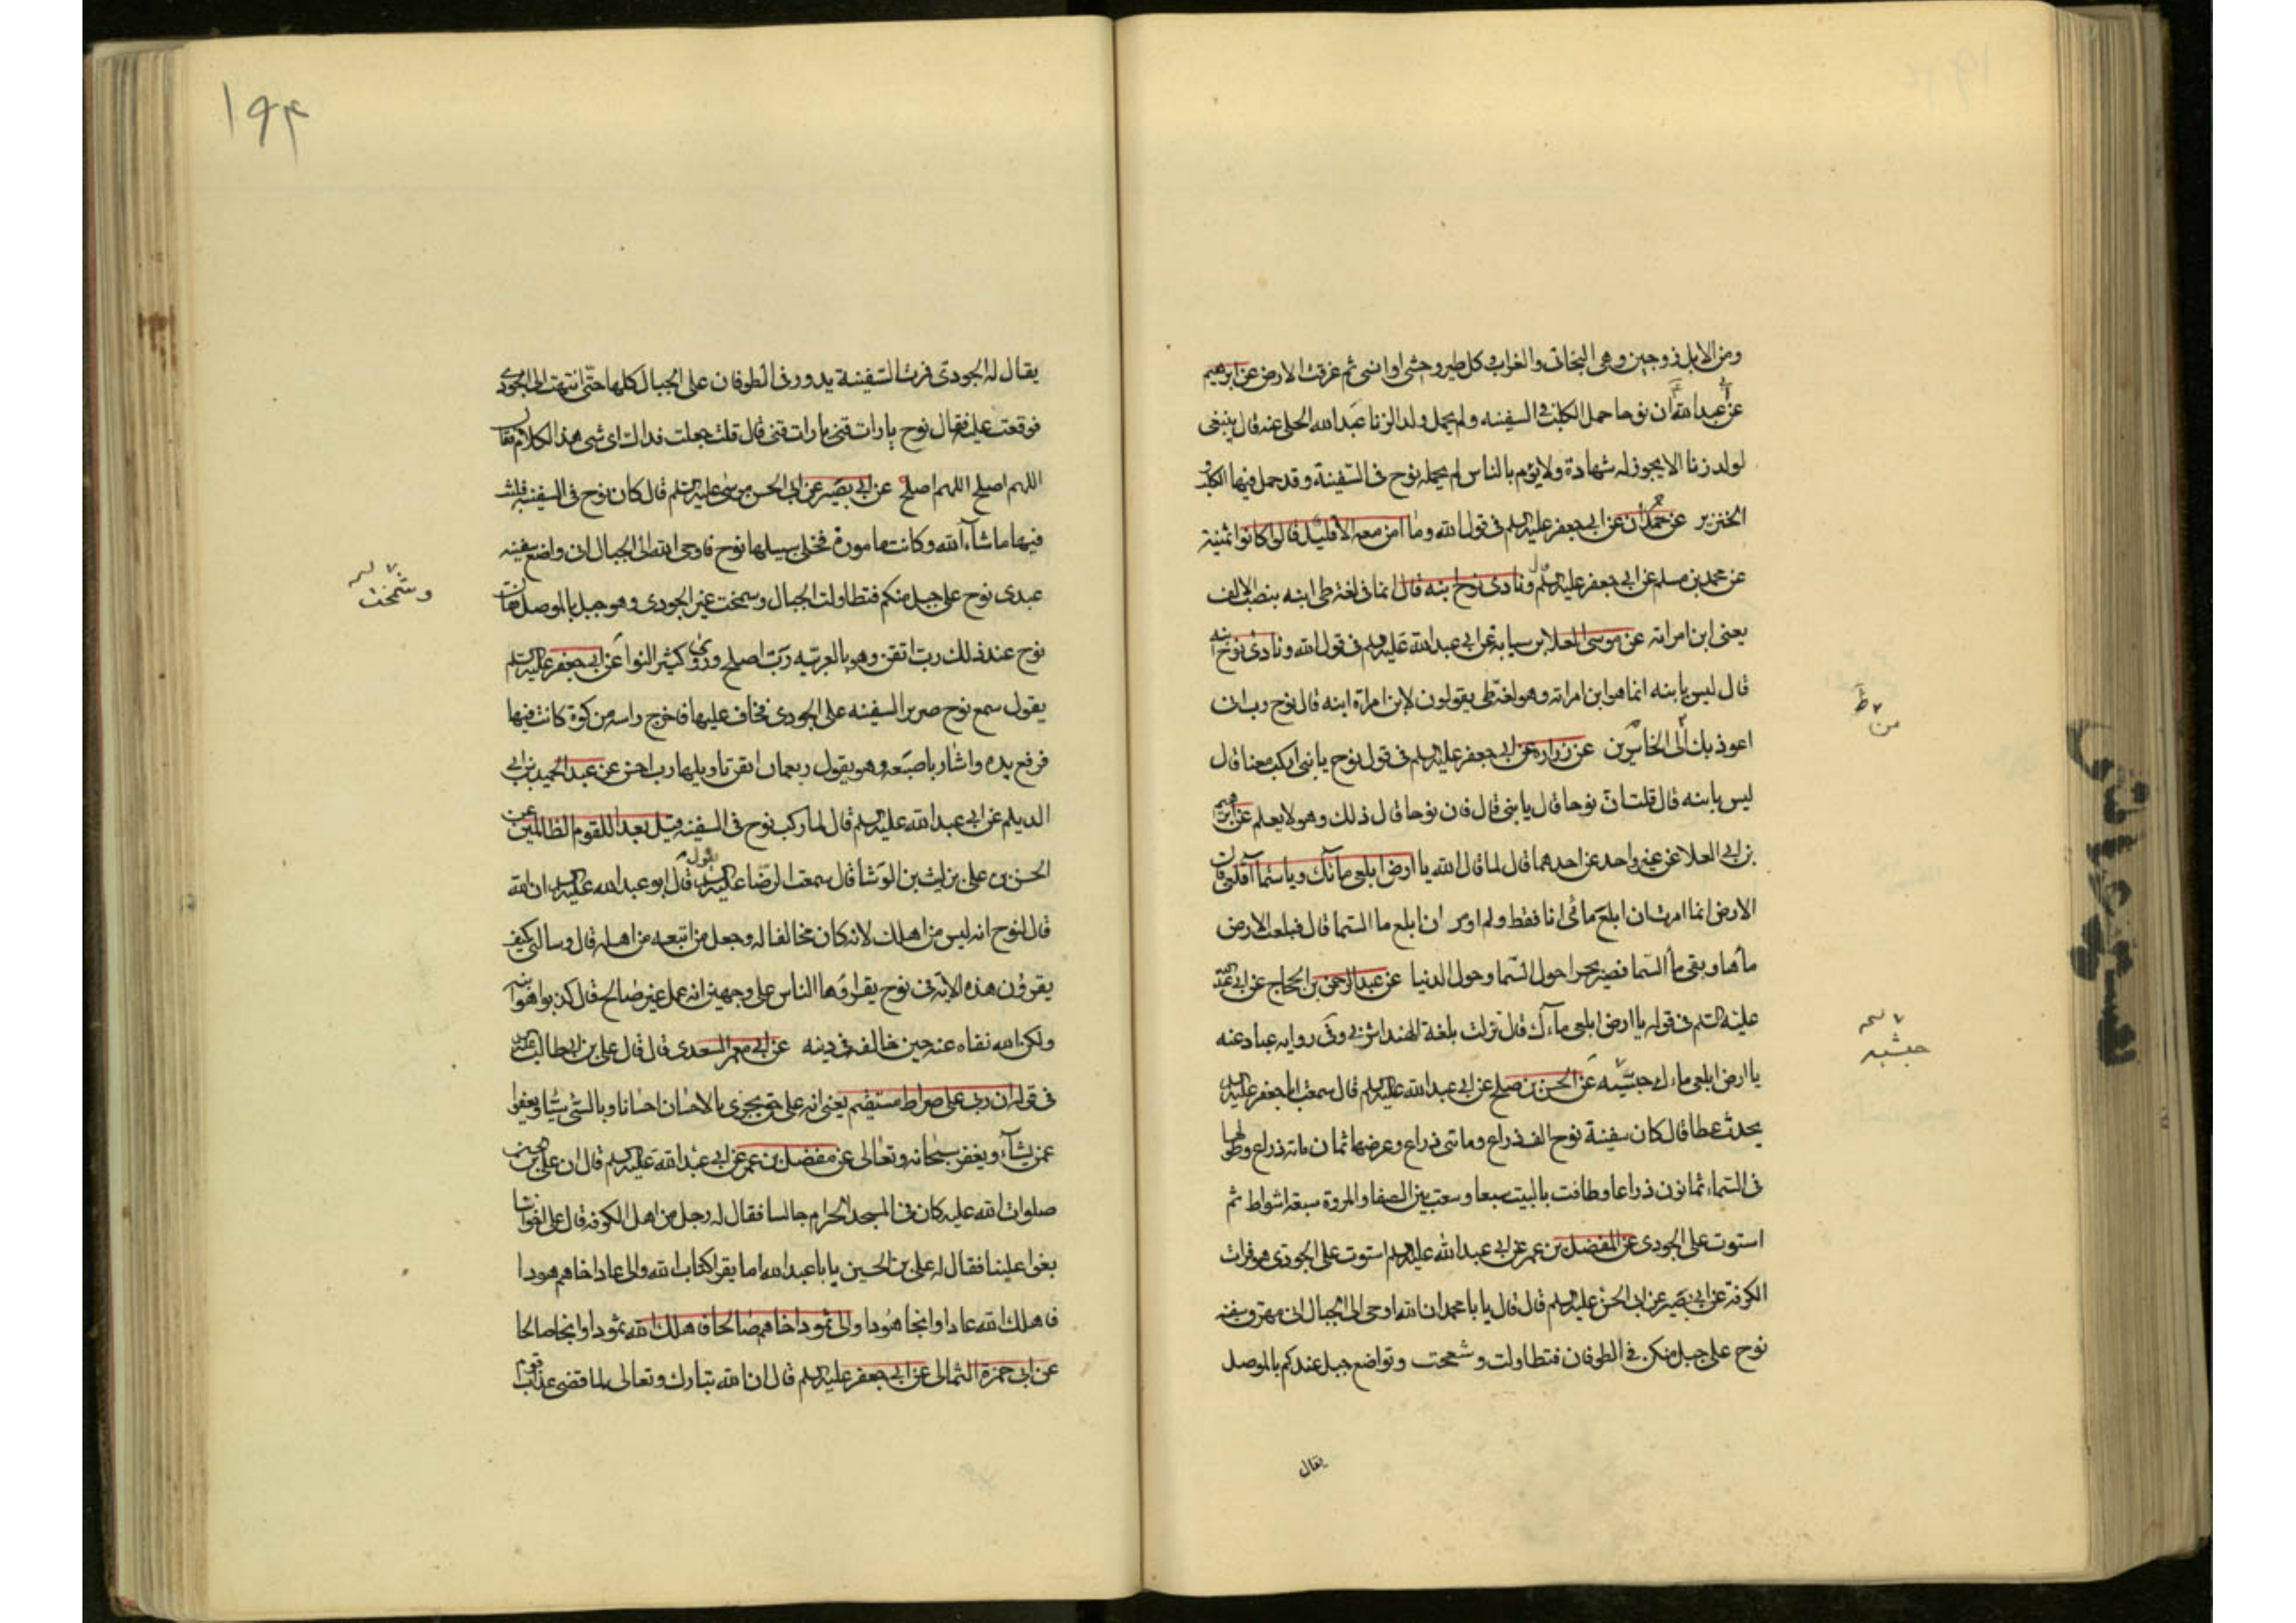 ومن الابل زوجين وهى البخاتى والغراب وكل طير وحشى او انسى ثم غرقت الارض عن ابرهيم
عن ابى عبدالله ان نوحا حمل الكلب فى السفينه ولم يحمل ولد الزنا عبدالله الحلبى عنه قال ينبغى
لولد زنا الا يجوز له شهادة ولا يؤم بالناس لم يحمله نوح فى السفينة وقد حمل فيها الكلب و
الخنزير عن حمران عن ابى جعفر عليه السلم فى قول الله وما امن معه الا قليل قال كانوا ثمنية
عن محمد بن مسلم عن ابى جعفر عليه السلم ونادى نوح ابنه قال انما فى لغة طى ابنه بنصب الالف
يعنى ابن امراته عن موسى العلا بن سيابة عن ابى عبدالله عليه السلم فى قول الله ونادى نوح ابنه
قال ليس بابنه انما هو ابن امراته وهو لغة طى يقولون لابن امراة ابنه قال نوح رب انى
اعوذ بك الى الخاسرين عن زراره عن ابى جعفر عليه السلم فى قول نوح يا بنى اركب معنا قال
ليس بابنه قال قلت ان نوحا قال يا بنى قال فان نوحا قال ذلك وهو لا يعلم عن ابرهيم
بن ابى العلا عن غير واحد عن احدهما قال لما قال الله يا ارض ابلعى مائك ويا سما اقلعى قالت
الارض انما امرت ان ابلع مائى انا فقط ولم اومر ان ابلع ما السما قال فبلعت الارض
ماها وبقى ما السما فصير بحرا حول السما وحول الدنيا عن عبد الرحمن بن الحجاج عن ابى عبدالله
عليه السلم فى قوله يا ارض ابلعى ماءك قال نزلت بلغة الهند اشربى وفى روايه عباد عنه
يا ارض ابلعى ماءك حبشيه عن الحسن بن صلح عن ابى عبدالله عليه السلم قال سمعت ابا جعفر عليه السلم
يحدث عطا قال كان سفينة نوح الف ذراع ومائتى ذراع وعرضها ثمان مائه ذراع وطولها
فى السماء ثمانون ذراعا وطافت بالبيت سبعا وسعت بين الصفا والمروة سبعة اشواط ثم
استوت على الجودى عن المفضل بن عمر عن ابى عبدالله عليه السلم استوت على الجودى هو فرات
الكوفه عن ابى بصير عن ابى الحسن عليه السلم قال قال يا با محمد ان الله اوحى الى الجبال انى مهرق سفينه
نوح على جبل منكن فى الطوفان فتطاولت وشمخت وتواضع جبل عندكم بالموصل
يقال
من
حبشيه
١٩٤
يقال له الجودى فمرت السفينة يدور فى الطوفان على الجبال كلها حتى انتهت الى الجودى
فوقعت عليه فقال نوح يا رات قنى يا رات قنى قال قلت جعلت فداك اى شى هذا الكلام فقال
اللهم اصلح اللهم اصلح عن ابى بصير عن ابى الحسن موسى عليه السلم قال كان نوح فى السفينه فلبث
فيها ما شاء الله وكانت مامورة فخلى سبيلها نوح فاوحى الله الى الجبال انى واضع سفينه
عبدى نوح على جبل منكم فتطاولت الجبال وسمخت غير الجودى وهو جبل بالموصل
نوح عند ذلك رب اتقن وهو بالعربيه رب اصلح وروى كثير النوا عن ابى جعفر عليه السلم
يقول سمع نوح صرير السفينه على الجودى فخاف عليها فاخرج راسه من كوة كانت فيها
فرفع يده واشار باصبعه وهو يقول ربعمان اتقن تاويلها رب احسن عن عبد الحميد بن ابى
الديلم عن ابى عبدالله عليه السلم قال لما ركب نوح فى السفينه وقيل بعدا للقوم الظالمين عن
الحسن بن على بن بنت بن الوشا قال سمعت الرضا عليه السلم يقول قال ابو عبد الله عليه السلم ان الله
قال لنوح انه ليس من اهلك لانه كان مخالفا له وجعل من اتبعه من اهله قال وسالنى كيف
يقرؤن هذه الآية فى نوح يقراوها الناس على وجهين انه عمل غير صالح قال كذبوا هو ابنه
ولكن الله نفاه عنه حين خالفه فى دينه عن ابى معمر السعدى قال قال على بن ابى طالب عليه السلم
فى قوله ان ربى على صراط مستقيم يعنى انه على حق يجزى بالاحسان احسانا وبالسيئ سيئا ويعفوا
عمن يشاء ويغفر سبحانه وتعالى عن مفضل بن عمر عن ابى عبدالله عليه السلم قال ان على بن
صلوات الله عليه كان فى المسجد الحرام جالسا فقال له رجل من اهل الكوفه قال على
بغوا علينا فقال له على بن الحسين يا با عبدالله اما يقرا كتاب الله والى عاد اخاهم هودا
فاهلك الله عادا وانجا هودا والى ثمود اخاهم صالحا فاهلك الله ثمودا وانجا صالحا
عن ابى حمزة الثمالى عن ابى جعفر عليه السلم قال ان الله تبارك وتعالى لما قضى عذاب قوم
وشمخت